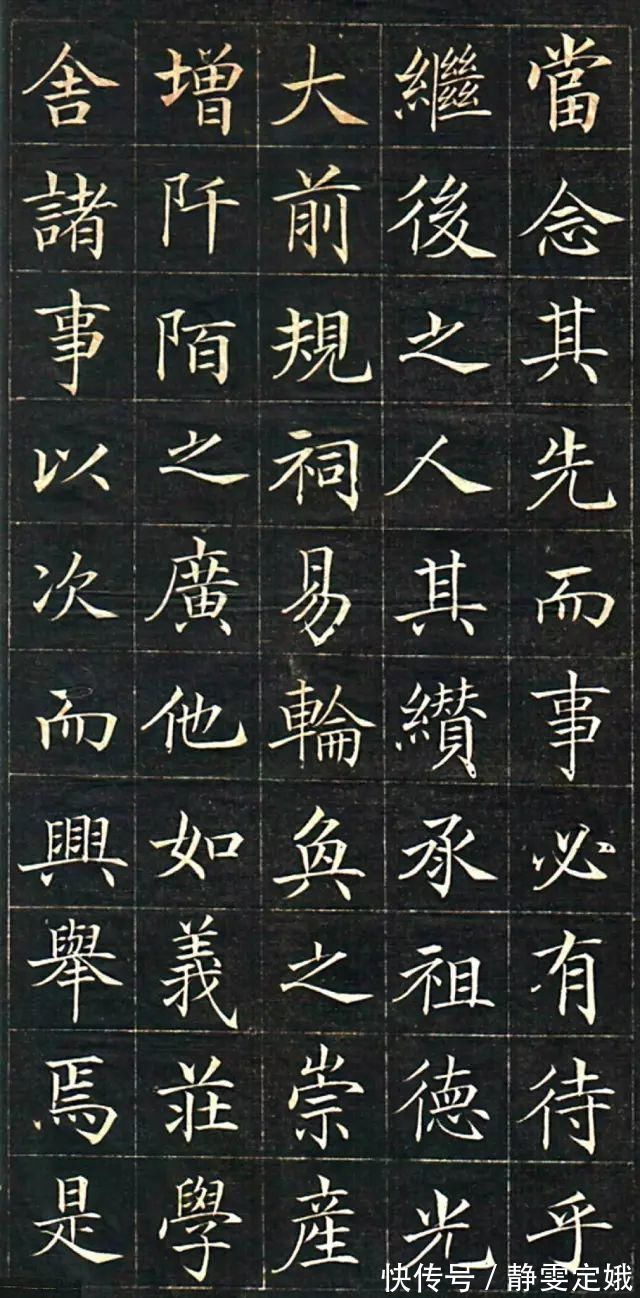 當念其先而事必有待乎
繼後之人其纘承祖德光
大前規祠易輪奐之崇產
增阡陌之廣他如義莊學
舍諸事以次而興舉焉是
快传号/静雯定娥